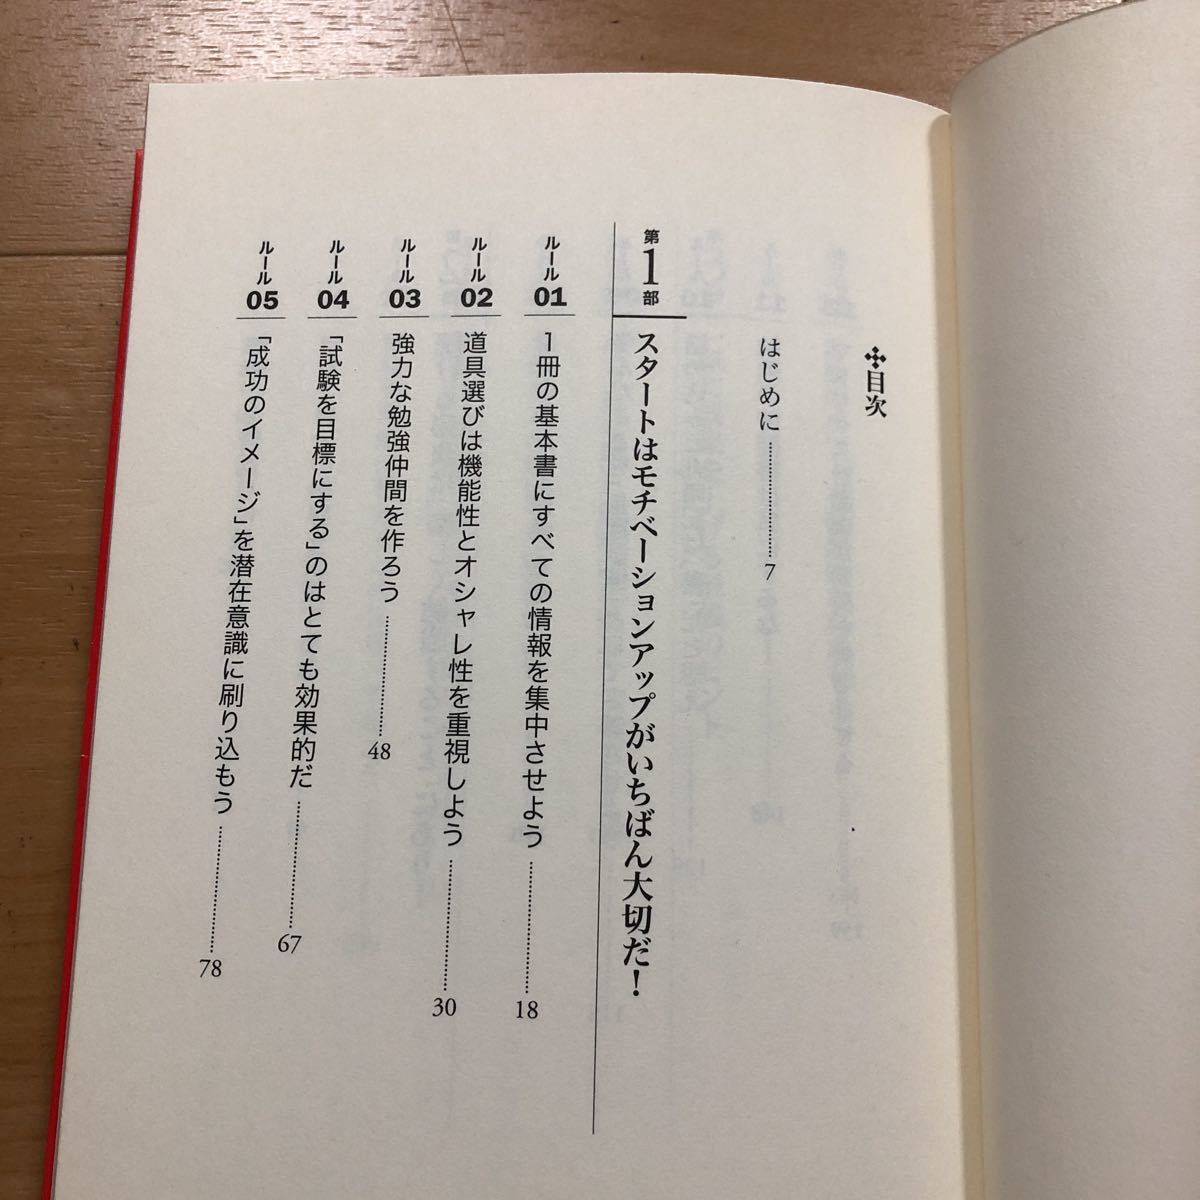 目次
はじめに 7
第1部 スタートはモチベーションアップがいちばん大切だ！
ルール01 1冊の基本書にすべての情報を集中させよう 18
ルール02 道具選びは機能性とオシャレ性を重視しよう 30
ルール03 強力な勉強仲間を作ろう 48
ルール04 「試験を目標にする」のはとても効果的だ 67
ルール05 「成功のイメージ」を潜在意識に刷り込もう 78